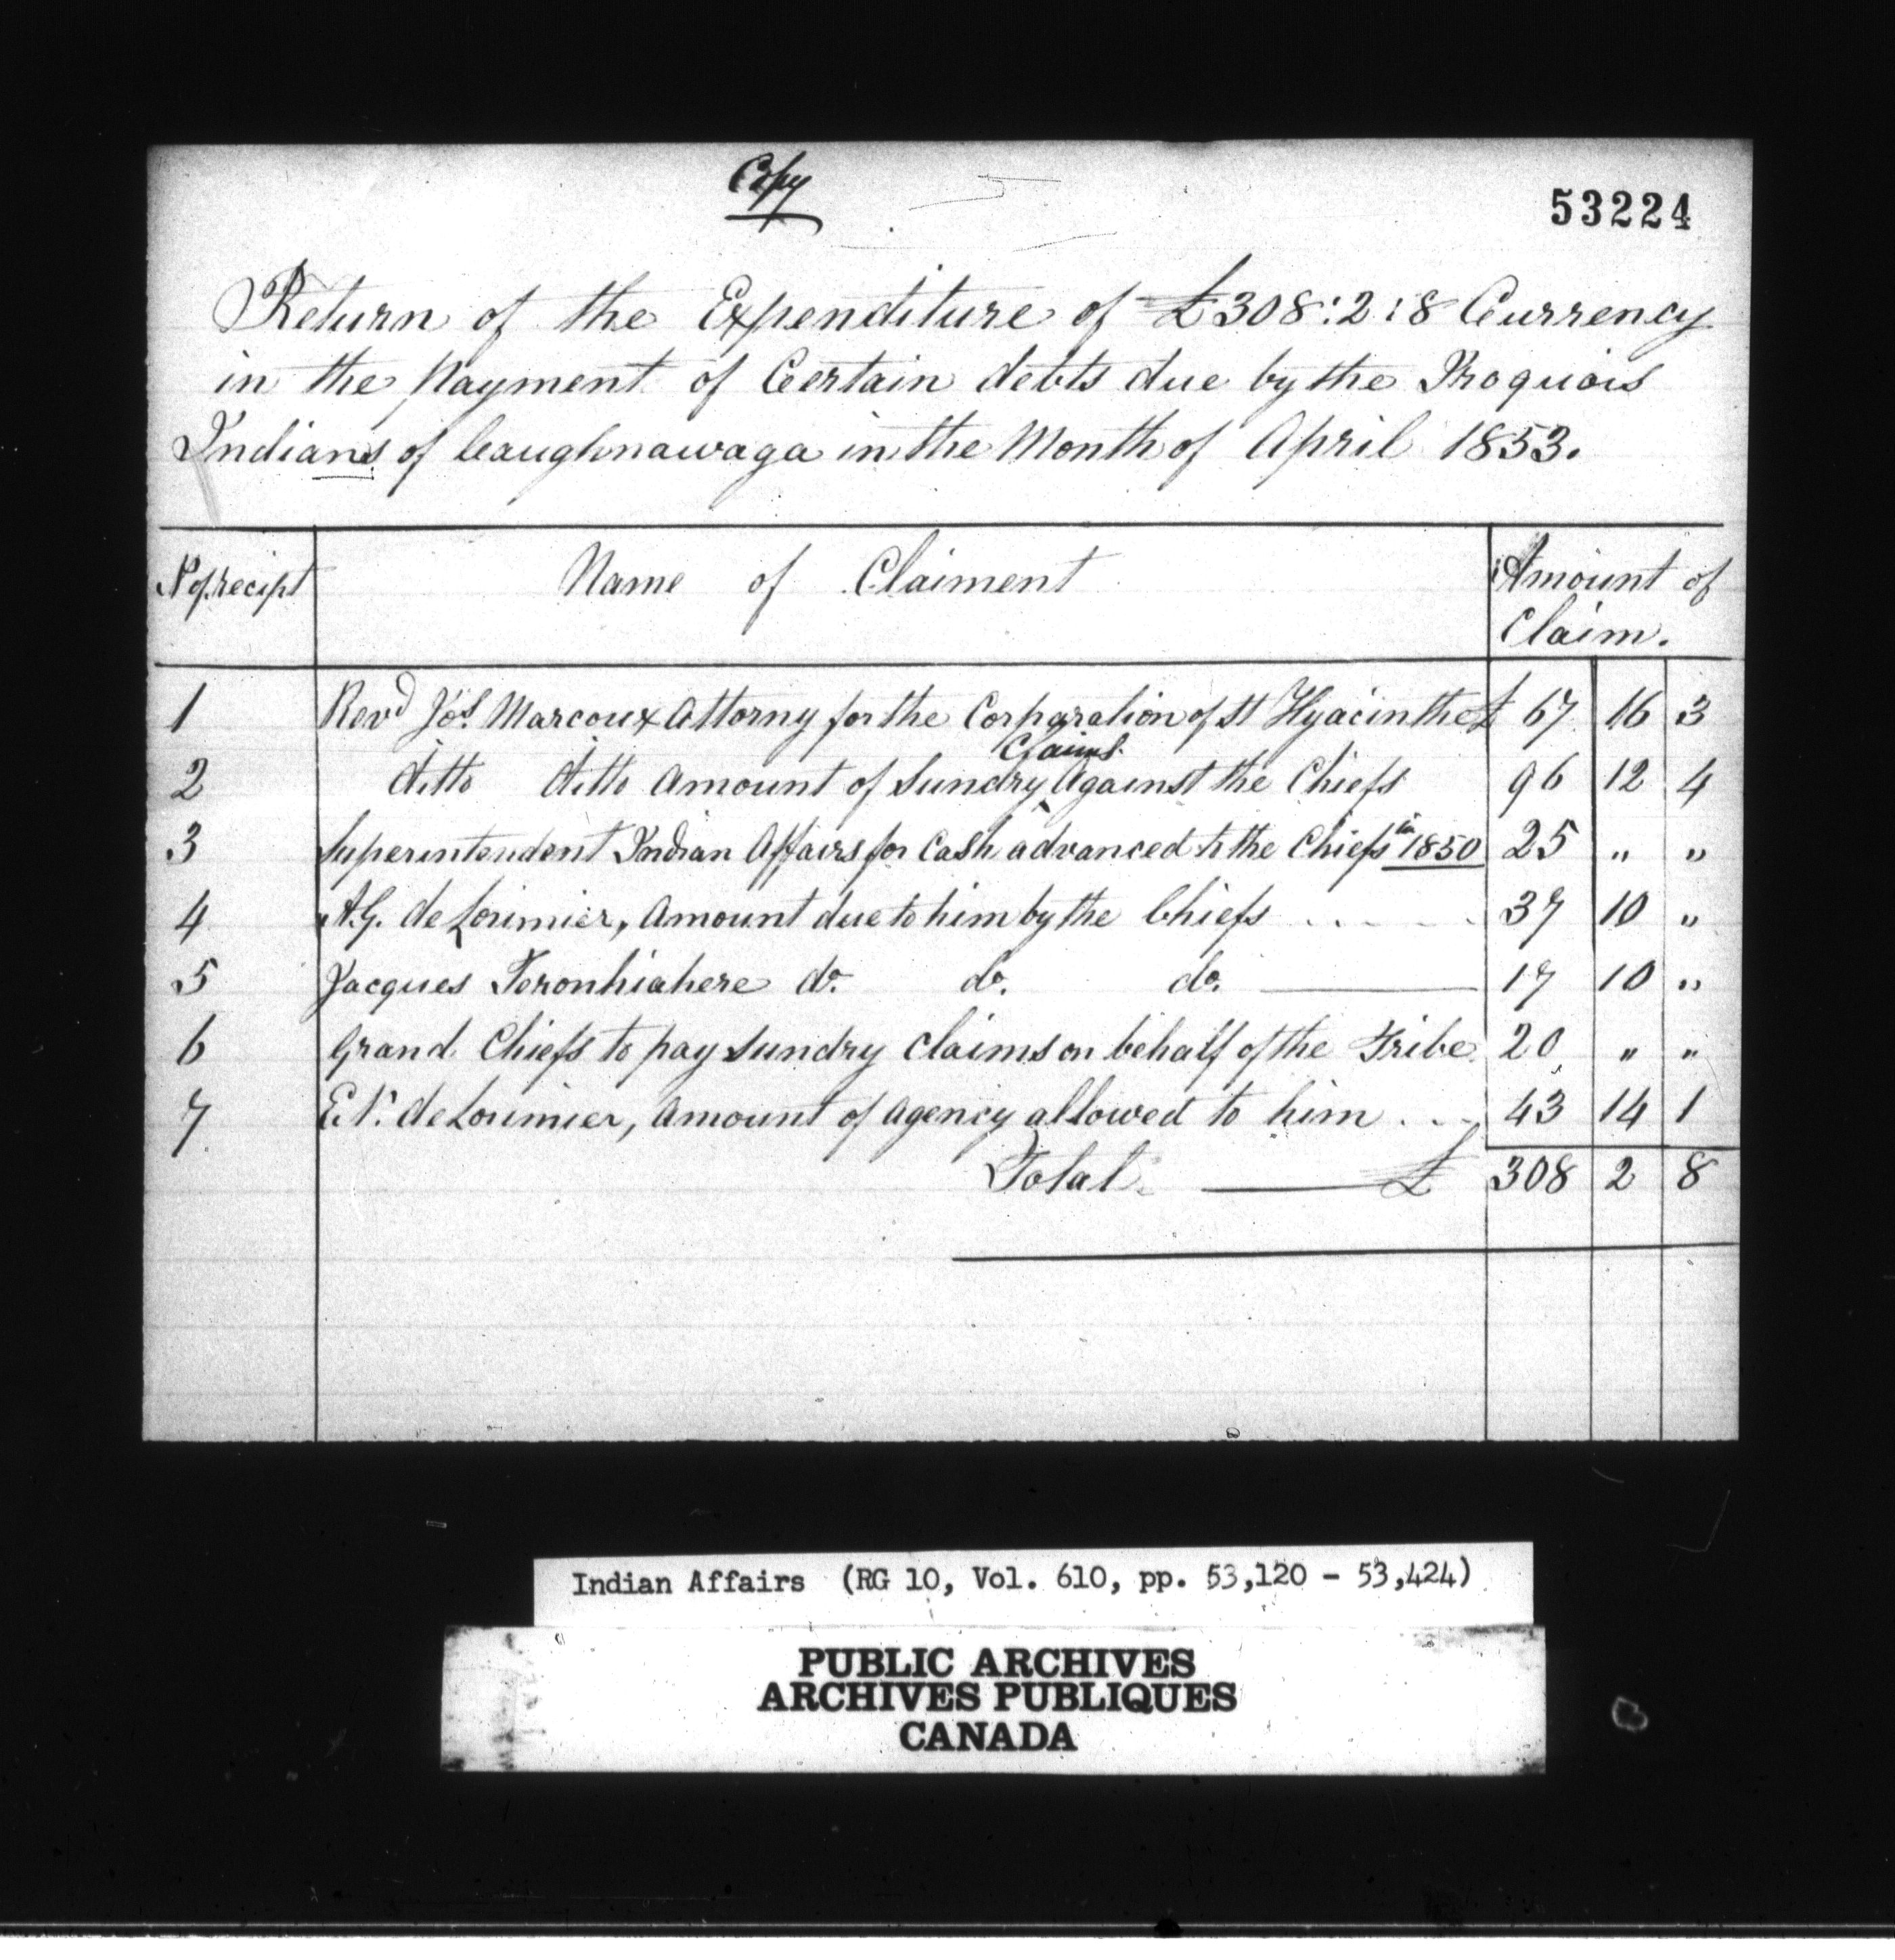 Copy
53224
Return of the Expenditure of £308:2:8 Currency
in the payment of Certain debts due by the Iroquois
Indians of Caughnawaga in the Month of April 1853.
No of recipt Name of Claiment Amount of
Claim.
1 Revd Jos. Marcoux Attorny for the Corparation of St Hyacinthe £ 67 16 3
Claims
2 ditto ditto Amount of Sundry Against the Chiefs 96 12 4
3 Superintendent Indian Affairs for Cash advanced to the Chiefs in 1850 25 " "
4 A.G. de Lorimier, Amount due to him by the Chiefs 37 10 "
5 Jacques Teronhiahere do. do. do. 17 10 "
6 Grand Chiefs to pay Sundry Claims on behalf of the Tribe 20 " "
7 de Lorimier, Amount of Agency allowed to him 43 14 1
Total £ 308 2 8
Indian Affairs (RG 10, Vol. 610, pp. 53,120 - 53,424)
PUBLIC ARCHIVES
ARCHIVES PUBLIQUES
CANADA